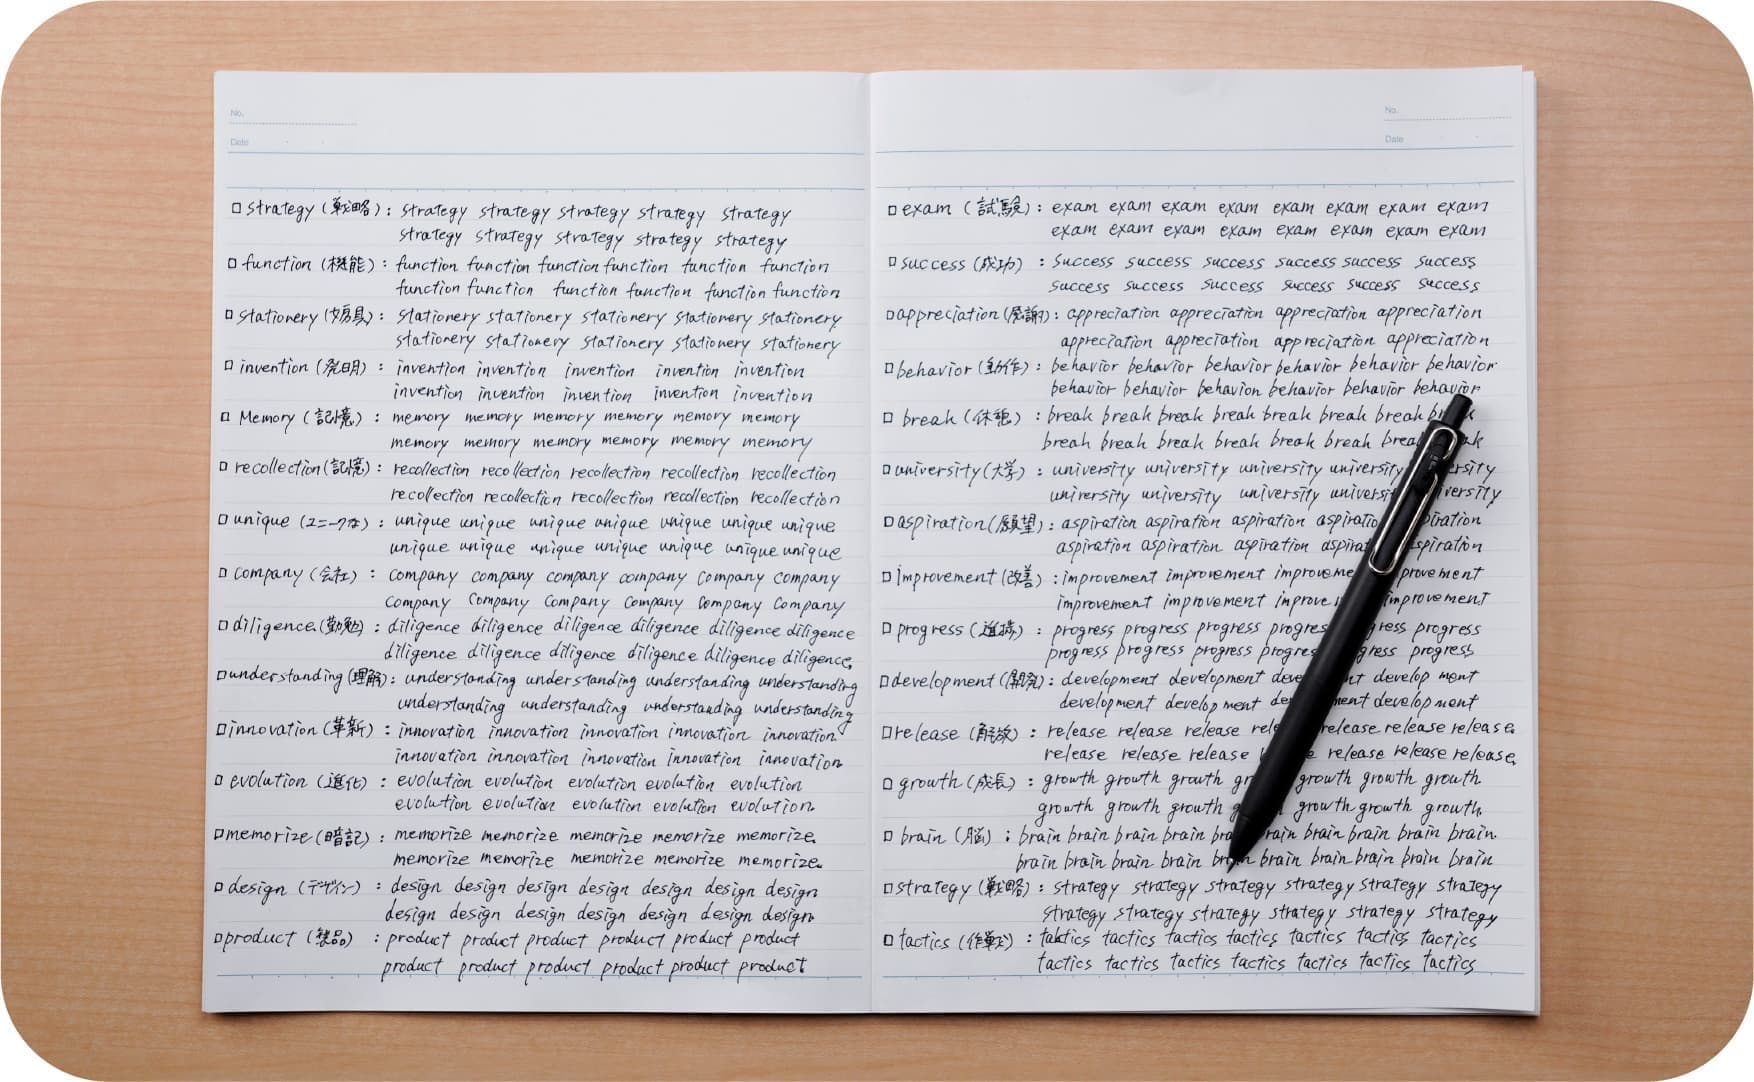 No.
Date
□ strategy (戦略) : strategy strategy strategy strategy strategy
strategy strategy strategy strategy strategy
□ function (機能) : function function function function function function
function function function function function function
□ stationery (文房具) : stationery stationery stationery stationery stationery
stationery stationery stationery stationery stationery
□ invention (発明) : invention invention invention invention invention
invention invention invention invention invention
□ Memory (記憶) : memory memory memory memory memory memory
memory memory memory memory memory memory
□ recollection (記憶) : recollection recollection recollection recollection recollection
recollection recollection recollection recollection recollection
□ unique (ユニークな) : unique unique unique unique unique unique unique
unique unique unique unique unique unique unique
□ company (会社) : company company company company company company
company company company company company company
□ diligence (勤勉) : diligence diligence diligence diligence diligence diligence
diligence diligence diligence diligence diligence diligence
□ understanding (理解) : understanding understanding understanding understanding
understanding understanding understanding understanding
□ innovation (革新) : innovation innovation innovation innovation innovation
innovation innovation innovation innovation innovation
□ evolution (進化) : evolution evolution evolution evolution evolution
evolution evolution evolution evolution evolution
□ memorize (暗記) : memorize memorize memorize memorize memorize
memorize memorize memorize memorize memorize
□ design (デザイン) : design design design design design design design
design design design design design design design
□ product (製品) : product product product product product product
product product product product product product
No.
Date
□ exam (試験) : exam exam exam exam exam exam exam exam
exam exam exam exam exam exam exam exam
□ success (成功) : success success success success success success
success success success success success success
□ appreciation (感謝) : appreciation appreciation appreciation appreciation
appreciation appreciation appreciation appreciation
□ behavior (動作) : behavior behavior behavior behavior behavior behavior
behavior behavior behavior behavior behavior behavior
□ break (休憩) : break break break break break break break break
break break break break break break break
□ university (大学) : university university university university
university university university university university
□ aspiration (願望) : aspiration aspiration aspiration
aspiration aspiration aspiration
□ improvement (改善) : improvement improvement
improvement improvement improvement
□ progress (進捗) : progress progress progress progress progress
progress progress progress progress progress
□ development (開発) : development development development
development development development
□ release (解放) : release release release release release release
release release release release release release
□ growth (成長) : growth growth growth growth growth growth
growth growth growth growth growth growth
□ brain (脳) : brain brain brain brain brain brain brain brain brain
brain brain brain brain brain brain brain brain brain brain
□ strategy (戦略) : strategy strategy strategy strategy strategy strategy
strategy strategy strategy strategy strategy strategy
□ tactics (作戦) : tactics tactics tactics tactics tactics tactics tactics
tactics tactics tactics tactics tactics tactics tactics